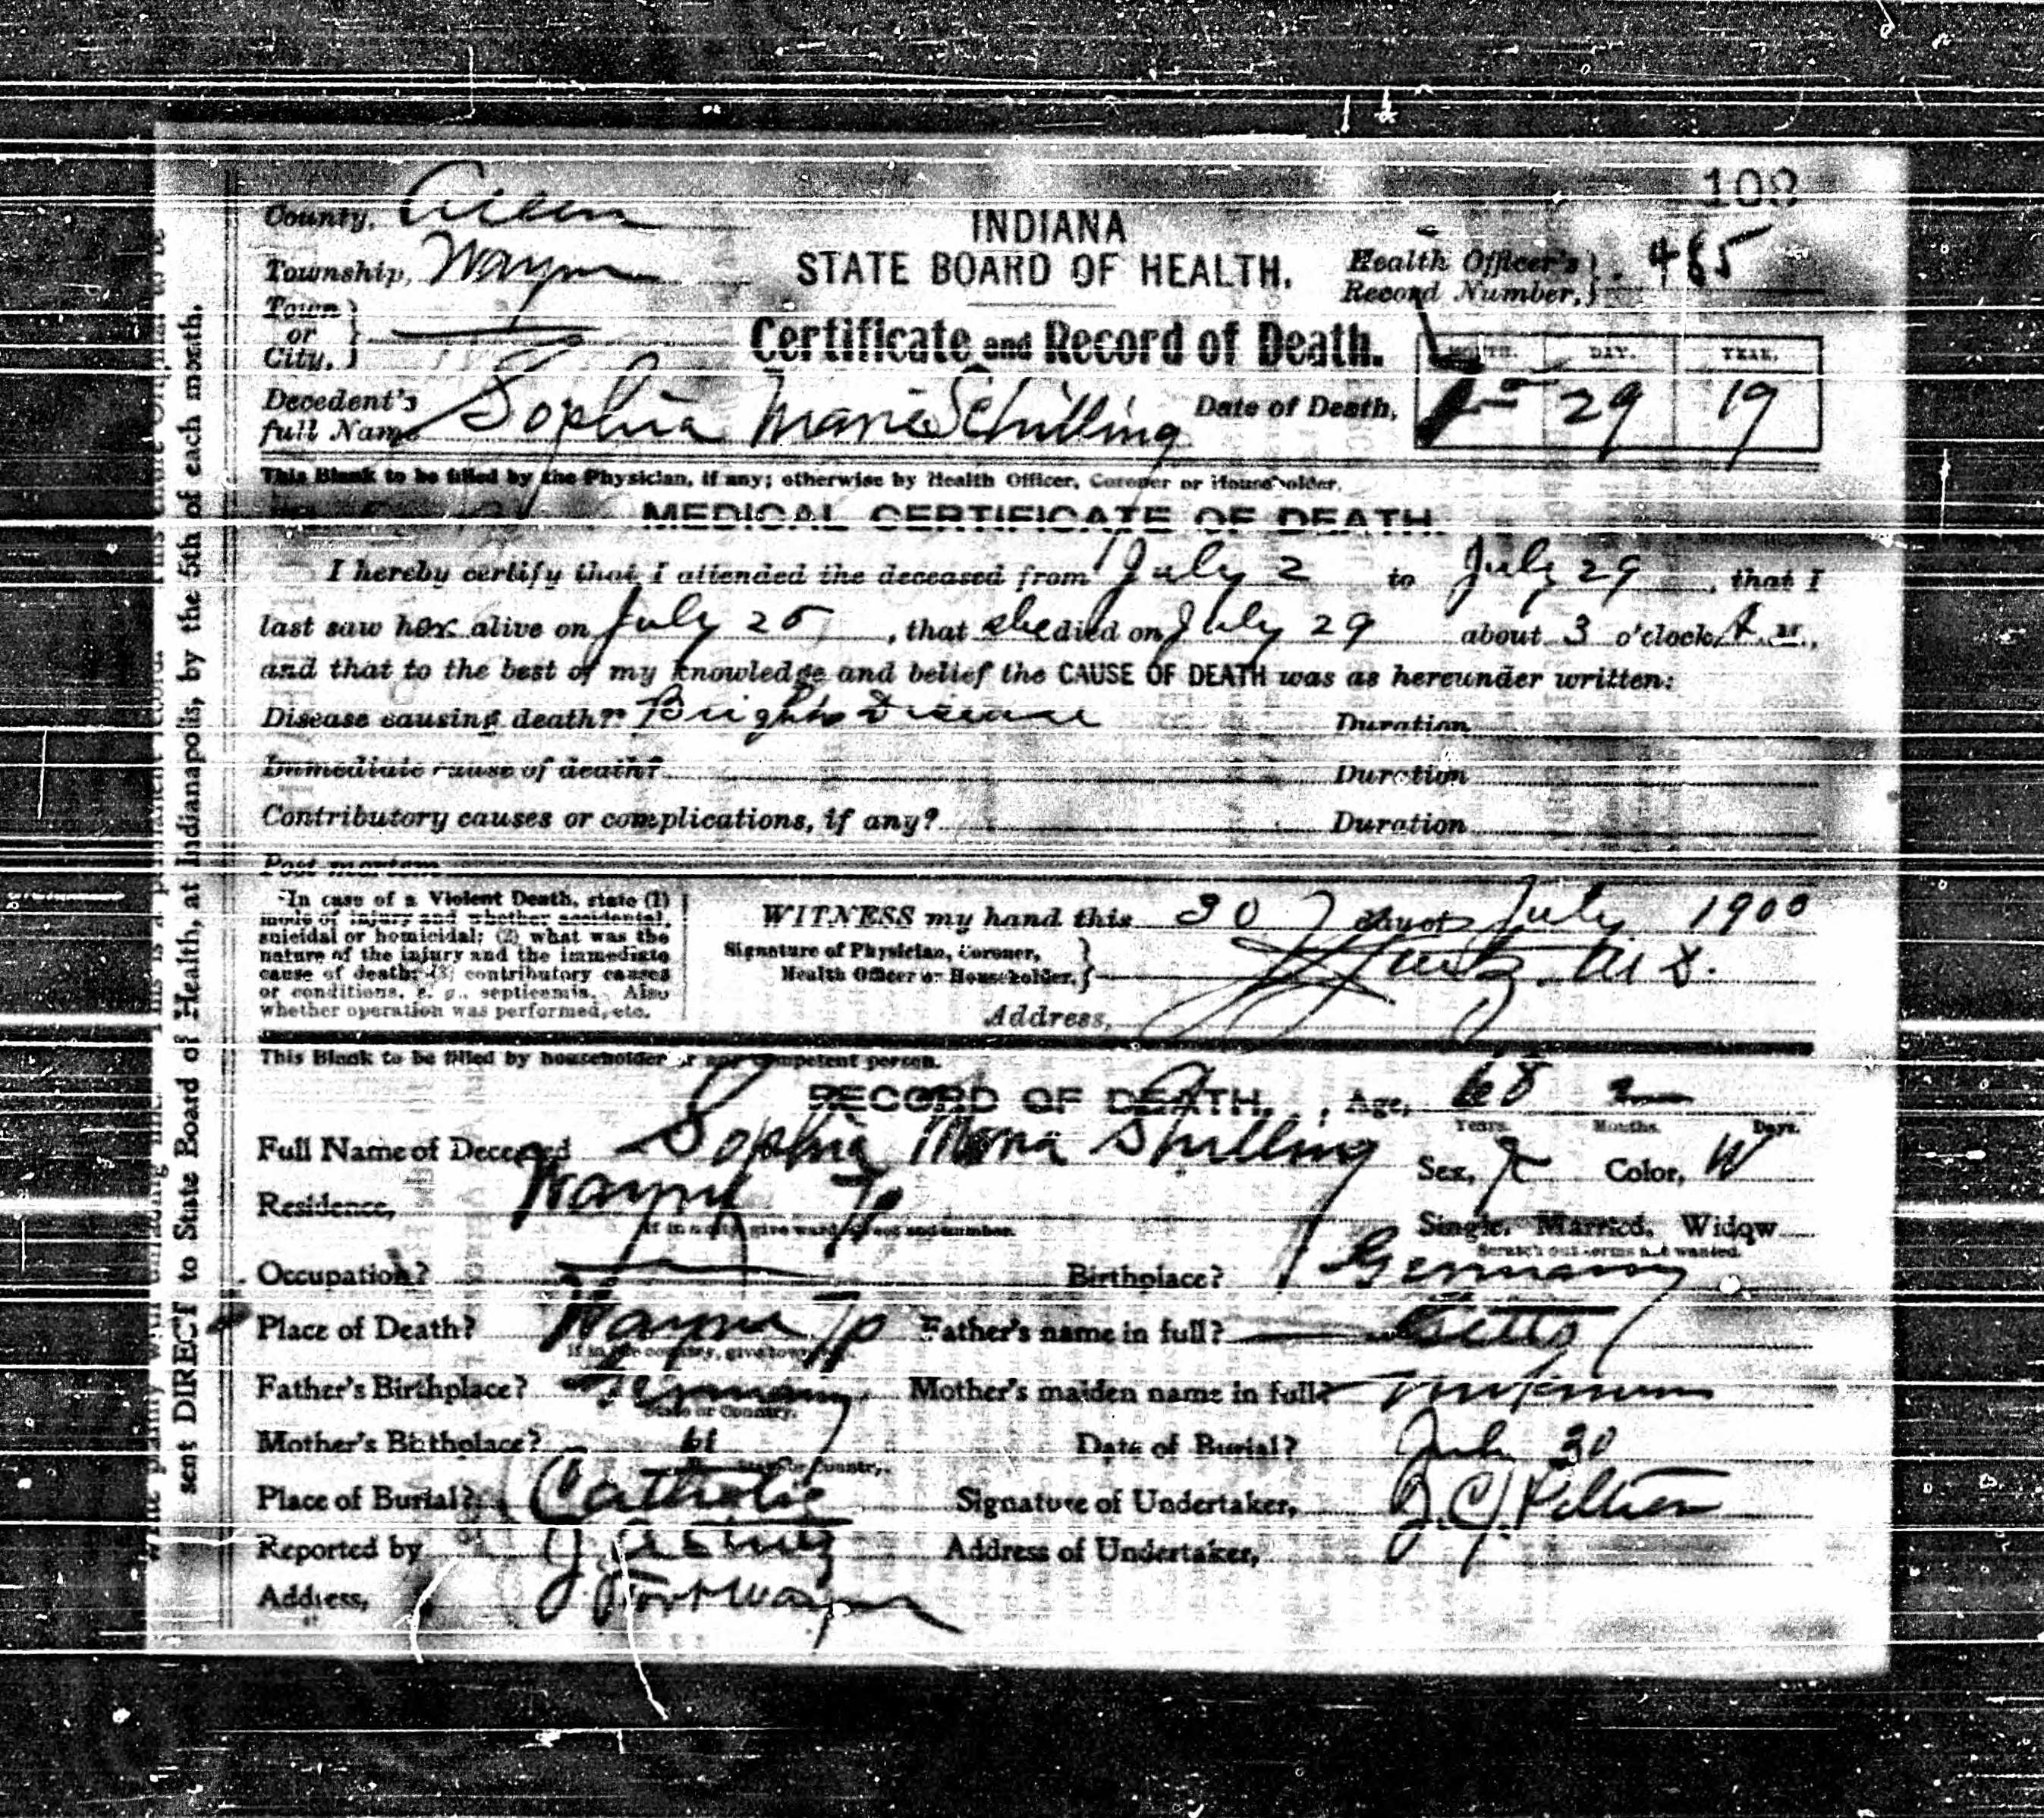 108
County, Allen
INDIANA
Township, Wayne
STATE BOARD OF HEALTH.
Health Officer's Record Number, 485
Town or City,
Certificate and Record of Death.
MONTH. DAY. YEAR.
Decedent's full Name Sophia Maria Schilling Date of Death, 29 19
This Blank to be filled by the Physician, if any; otherwise by Health Officer, Coroner or Householder.
MEDICAL CERTIFICATE OF DEATH.
I hereby certify that I attended the deceased from July 2 to July 29, that I
last saw her alive on July 25, that she died on July 29 about 3 o'clock, A. M.,
and that to the best of my knowledge and belief the CAUSE OF DEATH was as hereunder written:
Disease causing death?* Brights Disease Duration
Immediate cause of death? Duration
Contributory causes or complications, if any? Duration
Post mortem
*In case of a Violent Death, state (1)
mode of injury and whether accidental,
suicidal or homicidal; (2) what was the
nature of the injury and the immediate
cause of death; (3) contributory causes
or conditions, e. g., septicemia. Also
whether operation was performed, etc.
WITNESS my hand this 30 day of July 1900
Signature of Physician, Coroner, Health Officer or Householder, M D.
Address,
This Blank to be filled by householder or any competent person.
RECORD OF DEATH. Age, 68 2
Years. Months. Days.
Full Name of Deceased Sophia Maria Shilling Sex, F Color, W
Residence, Wayne Tp
If in a city give ward, street and number.
Single, Married, Widow
Scratch out terms not wanted.
Occupation? Birthplace? Germany
Place of Death? Wayne Tp Father's name in full?
If in the country, give township.
Father's Birthplace? Germany Mother's maiden name in full? unknown
State or Country.
Mother's Birthplace? " Date of Burial? July 30
State or Country.
Place of Burial? Catholic Signature of Undertaker, J. C. Peltier
Reported by Address of Undertaker,
Address, Fort Wayne
sent DIRECT to State Board of Health, at Indianapolis, by the 5th of each month.